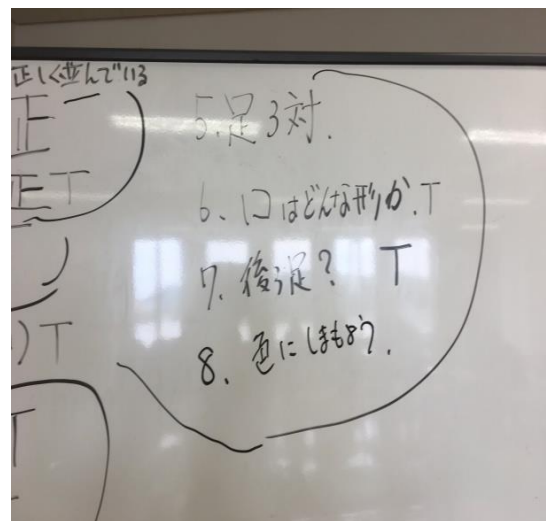 正しく並んでいる
正一
正T
T
T
5.足3対.
6、口はどんな形か.T
7.後ろ足? T
8、色にしまもよう.